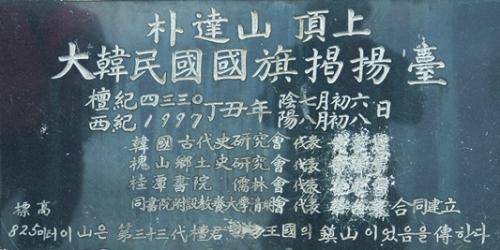 朴達山 頂上
大韓民國國旗揭揚臺
檀紀四三三○丁丑年 陰七月初六日
西紀1997 陽八月初八
韓國古代史研究會 代表
槐山鄕土史研究會 代表
桂潭書院 儒林會 代表
同書院附設敎養大學 合同建立
標高
825미터이山은 第三十三代檀君 王國의 鎭山이었음을 傳한다.